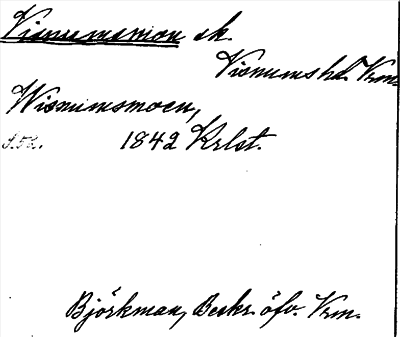 Visnumsmon sk.
Visnums hd. Vrm.
Wisnumsmoen,
s. 52. 1842 Krlst.
Björkman, Beskr. öfv. Vrm.